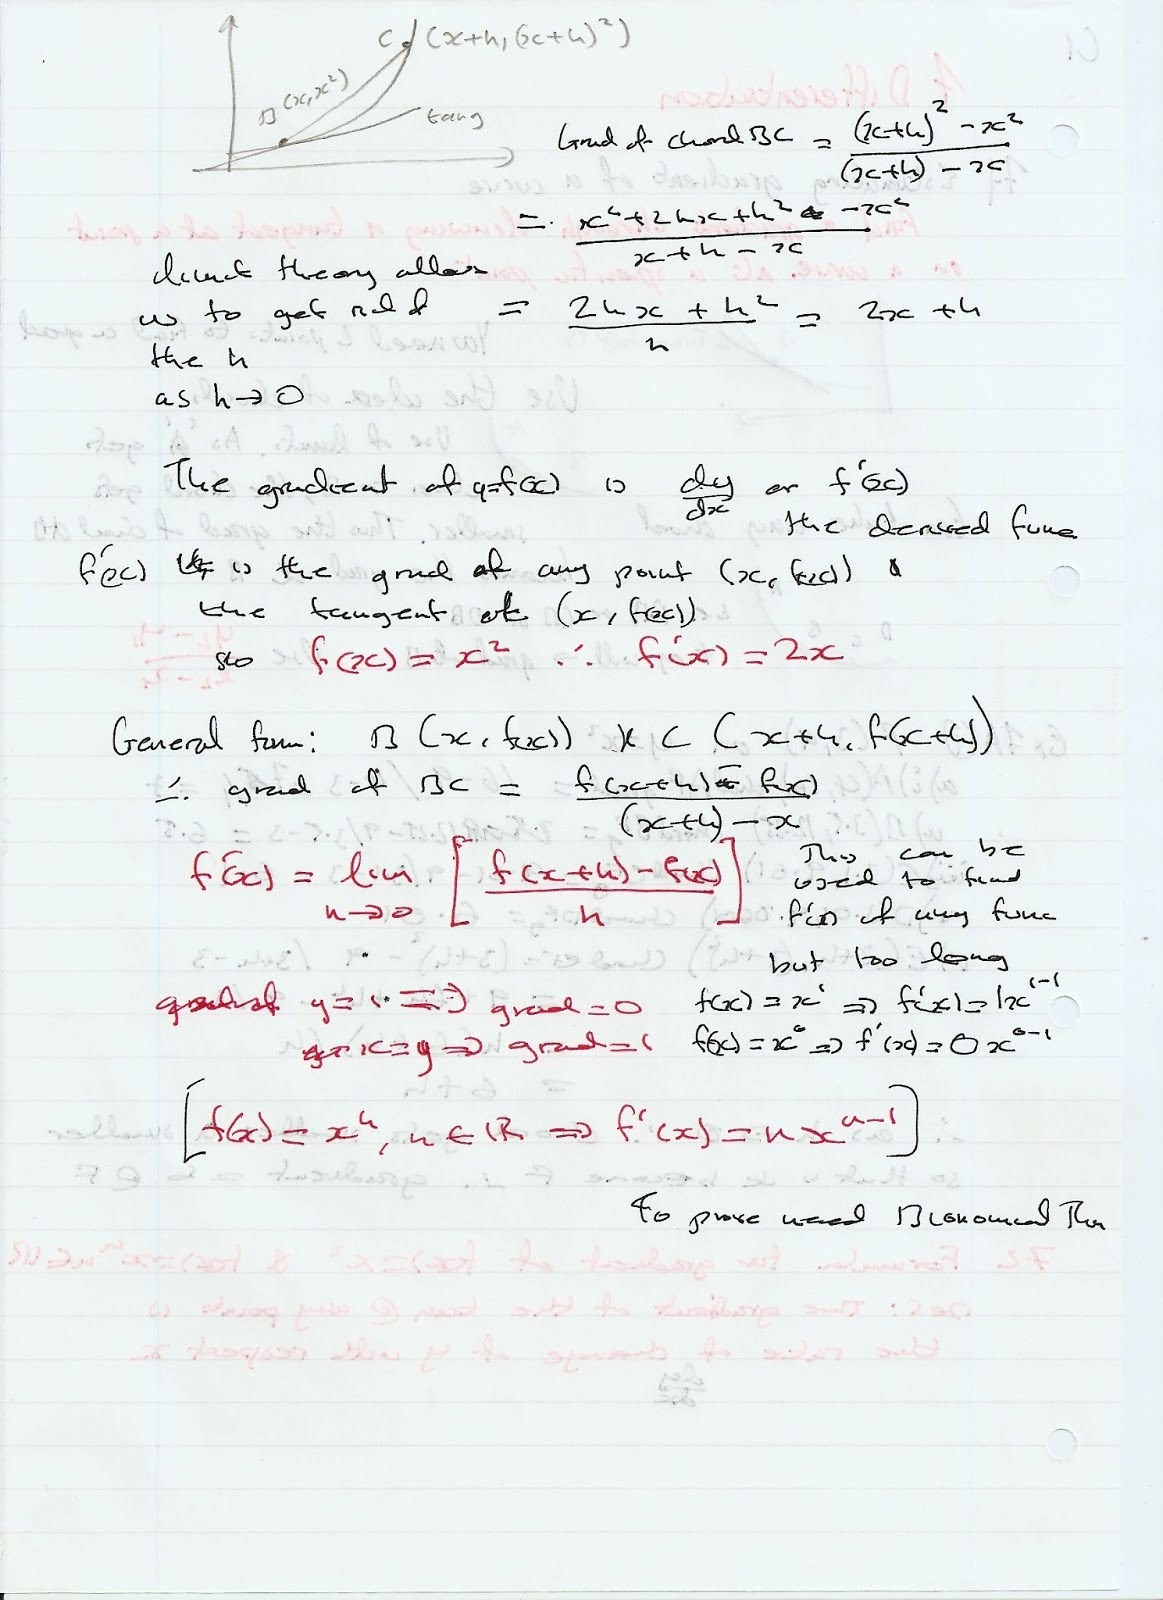 C (x+h, (x+h)²)
B (x, x²)
tang
Grad of chord BC = ((x+h)² - x²)/((x+h) - x)
= (x²+2hx+h² - x²)/(x+h-x)
Limit theory allows
us to get rid of
the h
as h→0
= (2hx + h²)/h = 2x + h
The gradient of y=f(x) is dy/dx or f'(x)
the derived func
f'(x) is the grad of any point (x, f(x)) &
the tangent at (x, f(x))
so f(x) = x² ∴ f'(x) = 2x
General form: B (x, f(x)) & C (x+h, f(x+h))
∴ grad of BC = (f(x+h) - f(x))/((x+h) - x)
f'(x) = lim h→0 [(f(x+h) - f(x))/h]
This can be
used to find
f'(x) of any func
but too long
grad of y = 1 ⇒ grad = 0
f(x) = x¹ ⇒ f'(x) = 1x¹⁻¹
x = y ⇒ grad = 1
f(x) = x⁰ ⇒ f'(x) = 0x⁰⁻¹
[f(x) = xⁿ, n ∈ ℝ ⇒ f'(x) = n xⁿ⁻¹]
To prove need Bionomical Thm